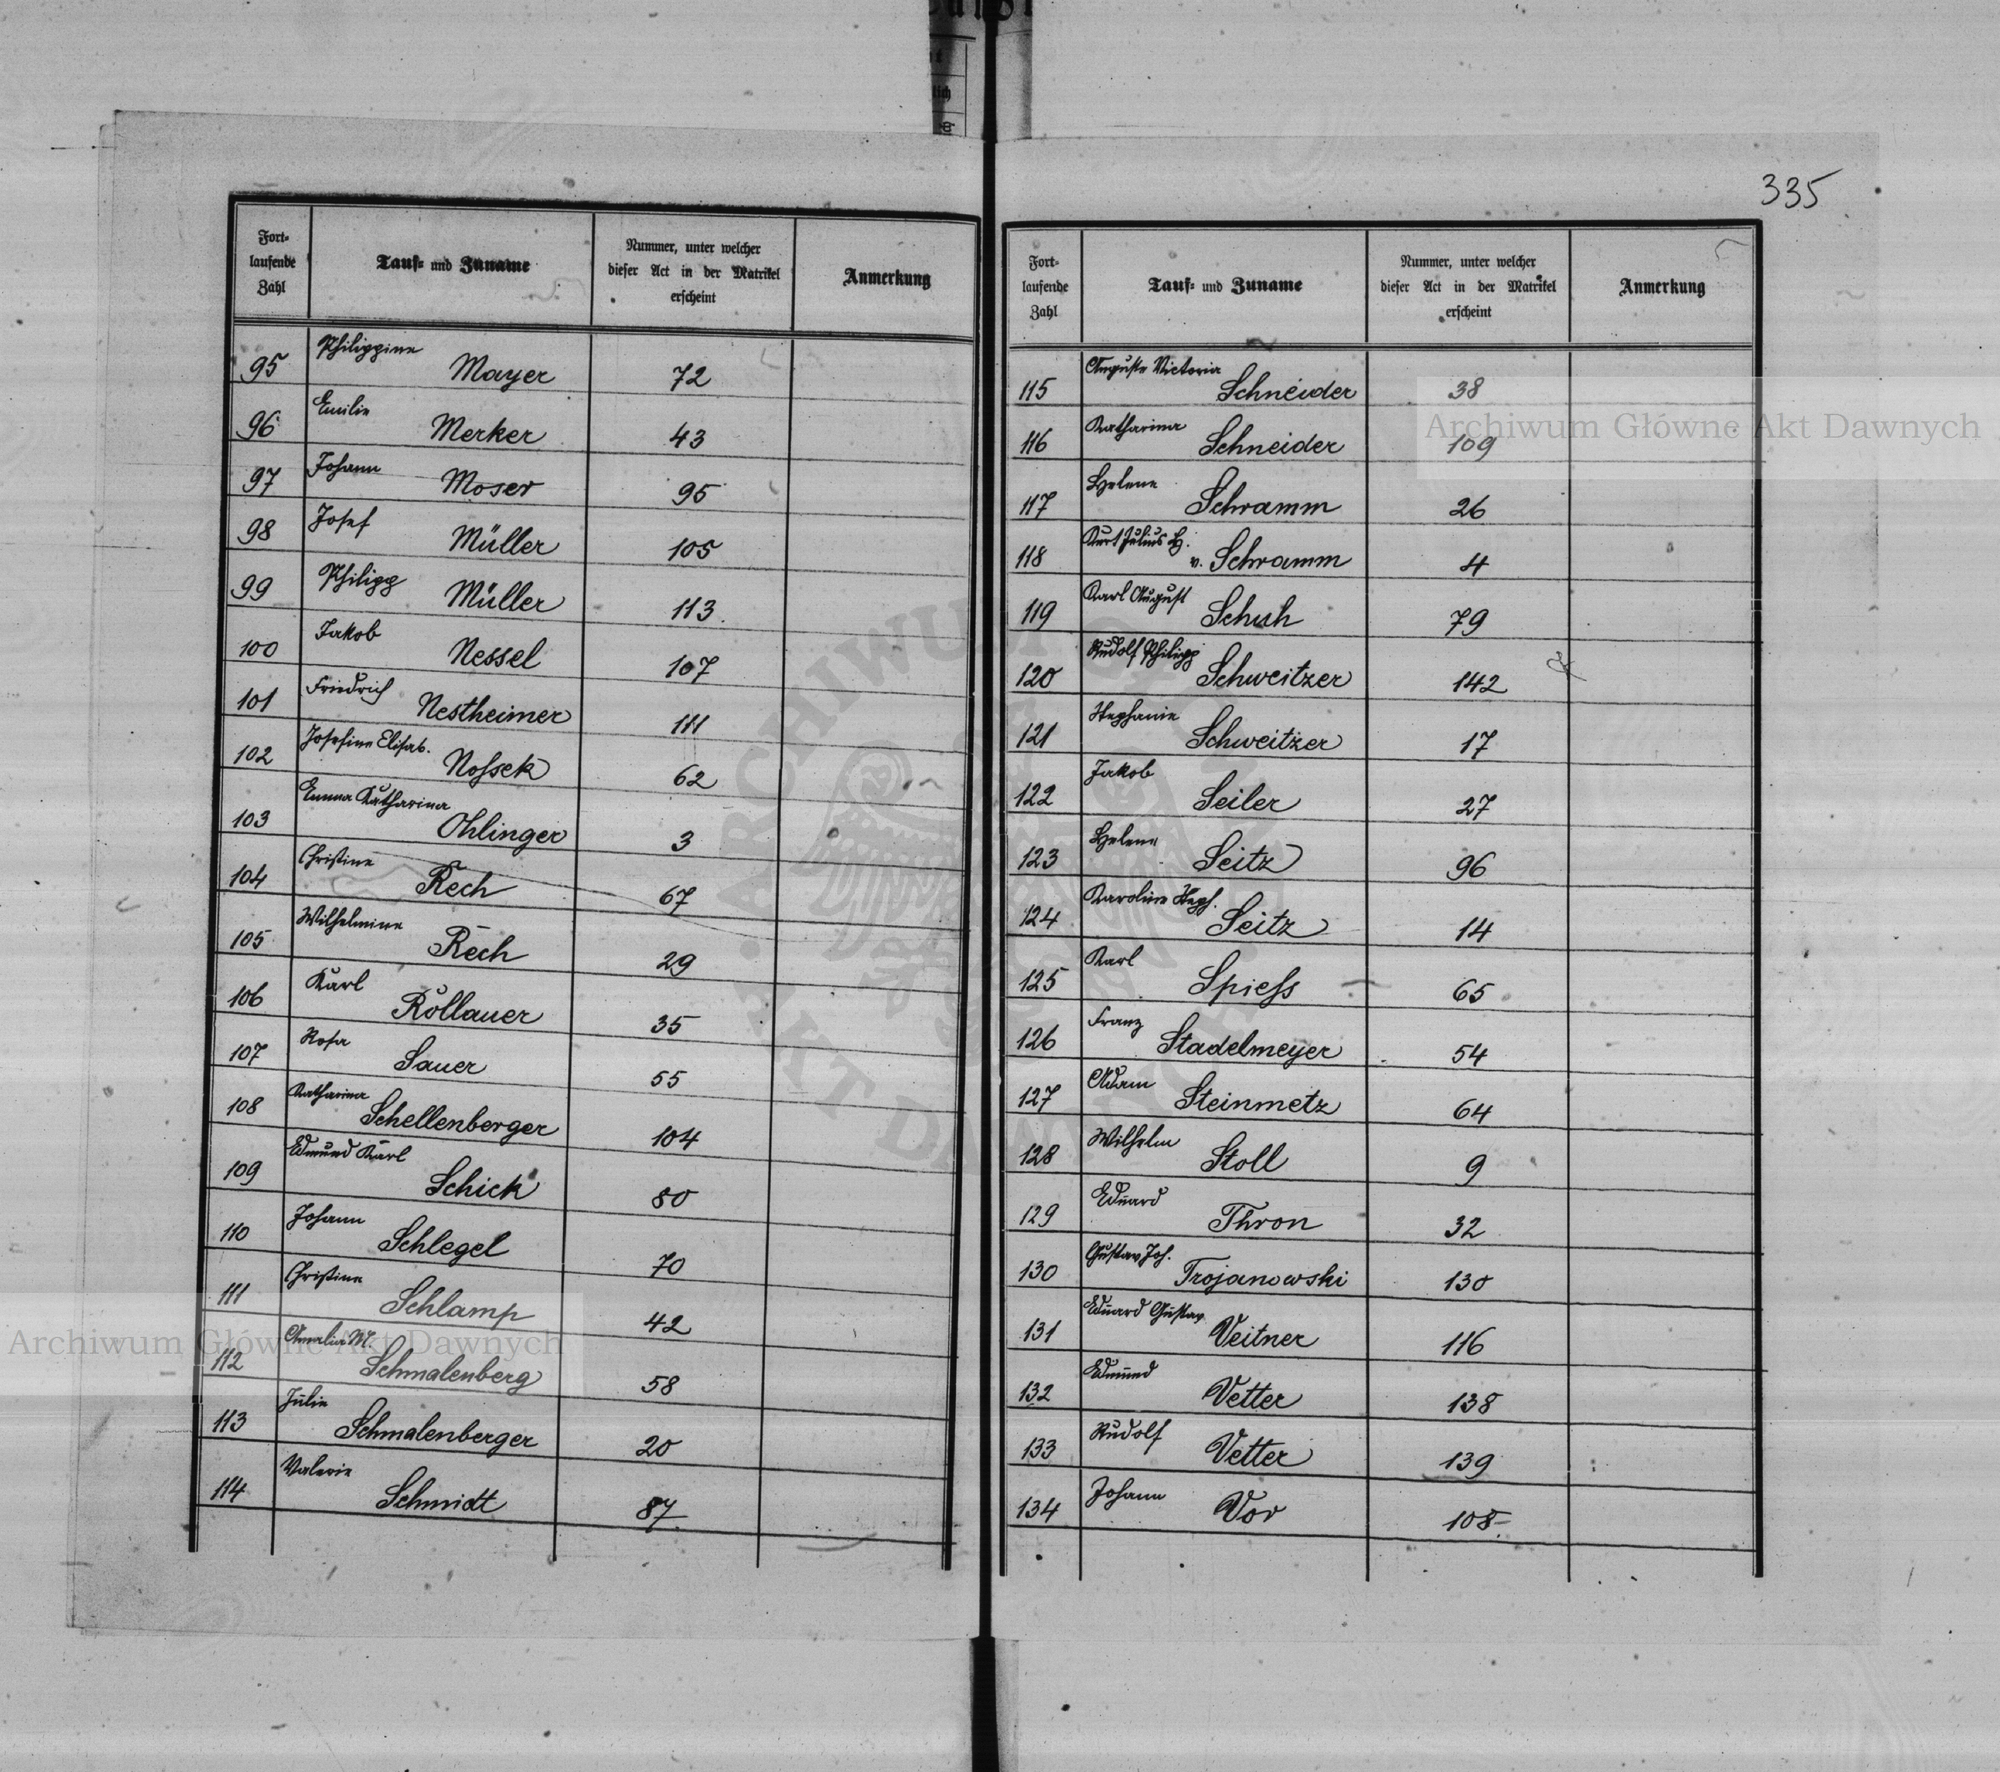 335
Fort-
laufende
Zahl
Tauf= und Zuname
Nummer, unter welcher
dieser Act in der Matrikel
erscheint
Anmerkung
95 Philippine Mayer 72
96 Emilie Merker 43
97 Johann Moser 95
98 Josef Müller 105
99 Philipp Müller 113
100 Jakob Nessel 107
101 Friedrich Nestheimer 111
102 Josefine Elisab. Nossek 62
103 Emma Katharina Ohlinger 3
104 Christine Rech 67
105 Wilhelmine Rech 29
106 Karl Röllauer 35
107 Rosa Sauer 55
108 Katharina Schellenberger 104
109 Edmund Karl Schick 80
110 Johann Schlegel 70
111 Christine Schlamp 42
112 Amalia M. Schmalenberg 58
113 Julie Schmalenberger 20
114 Valerie Schmidt 87
Fort-
laufende
Zahl
Tauf= und Zuname
Nummer, unter welcher
dieser Act in der Matrikel
erscheint
Anmerkung
115 Auguste Victoria Schneider 38
116 Katharina Schneider 109
117 Helene Schramm 26
118 Kurt Julius H. v. Schramm 4
119 Karl August Schuh 79
120 Rudolf Philipp Schweitzer 142
121 Stephanie Schweitzer 17
122 Jakob Seiler 27
123 Helene Seitz 96
124 Karoline Steph. Seitz 14
125 Karl Spiess 65
126 Franz Stadelmeyer 54
127 Adam Steinmetz 64
128 Wilhelm Stoll 9
129 Eduard Thron 32
130 Gustav Joh. Trojanowski 130
131 Eduard Gustav Veitner 116
132 Edmund Vetter 138
133 Rudolf Vetter 139
134 Johann Vor 108
Archiwum Główne Akt Dawnych
Archiwum Główne Akt Dawnych